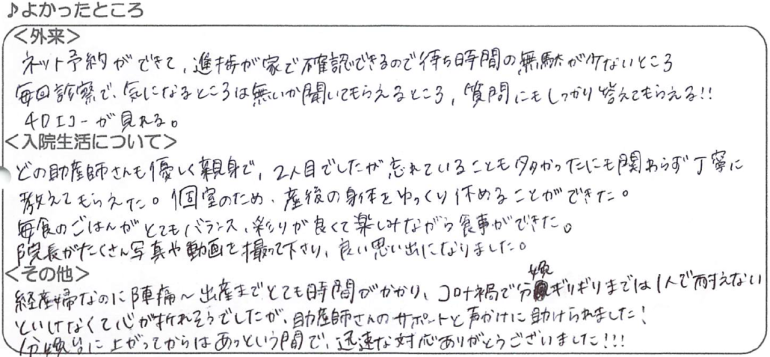 ♪よかったところ
＜外来＞
ネット予約ができて、進捗が家で確認できるので待ち時間の無駄が少ないところ
毎回診察で、気になるところは無いか聞いてもらえるところ，質問にもしっかり答えてもらえる!!
4Dエコーが見れる。
＜入院生活について＞
どの助産師さんも優しく親身で、2人目でしたが忘れていることも多かったにも関わらず丁寧に
教えてもらえた。個室のため、産後の身体をゆっくり休めることができた。
毎食のごはんがとてもバランス、彩りが良くて楽しみながら食事ができた。
院長がたくさん写真や動画を撮って下さり、良い思い出になりました。
＜その他＞
経産婦なのに陣痛～出産までとても時間がかかり、コロナ禍で分娩ギリギリまでは1人で耐えない
といけなくて心が折れそうでしたが、助産師さんのサポートと声かけに助けられました!
分娩台に上がってからはあっという間で、迅速な対応ありがとうございました!!!